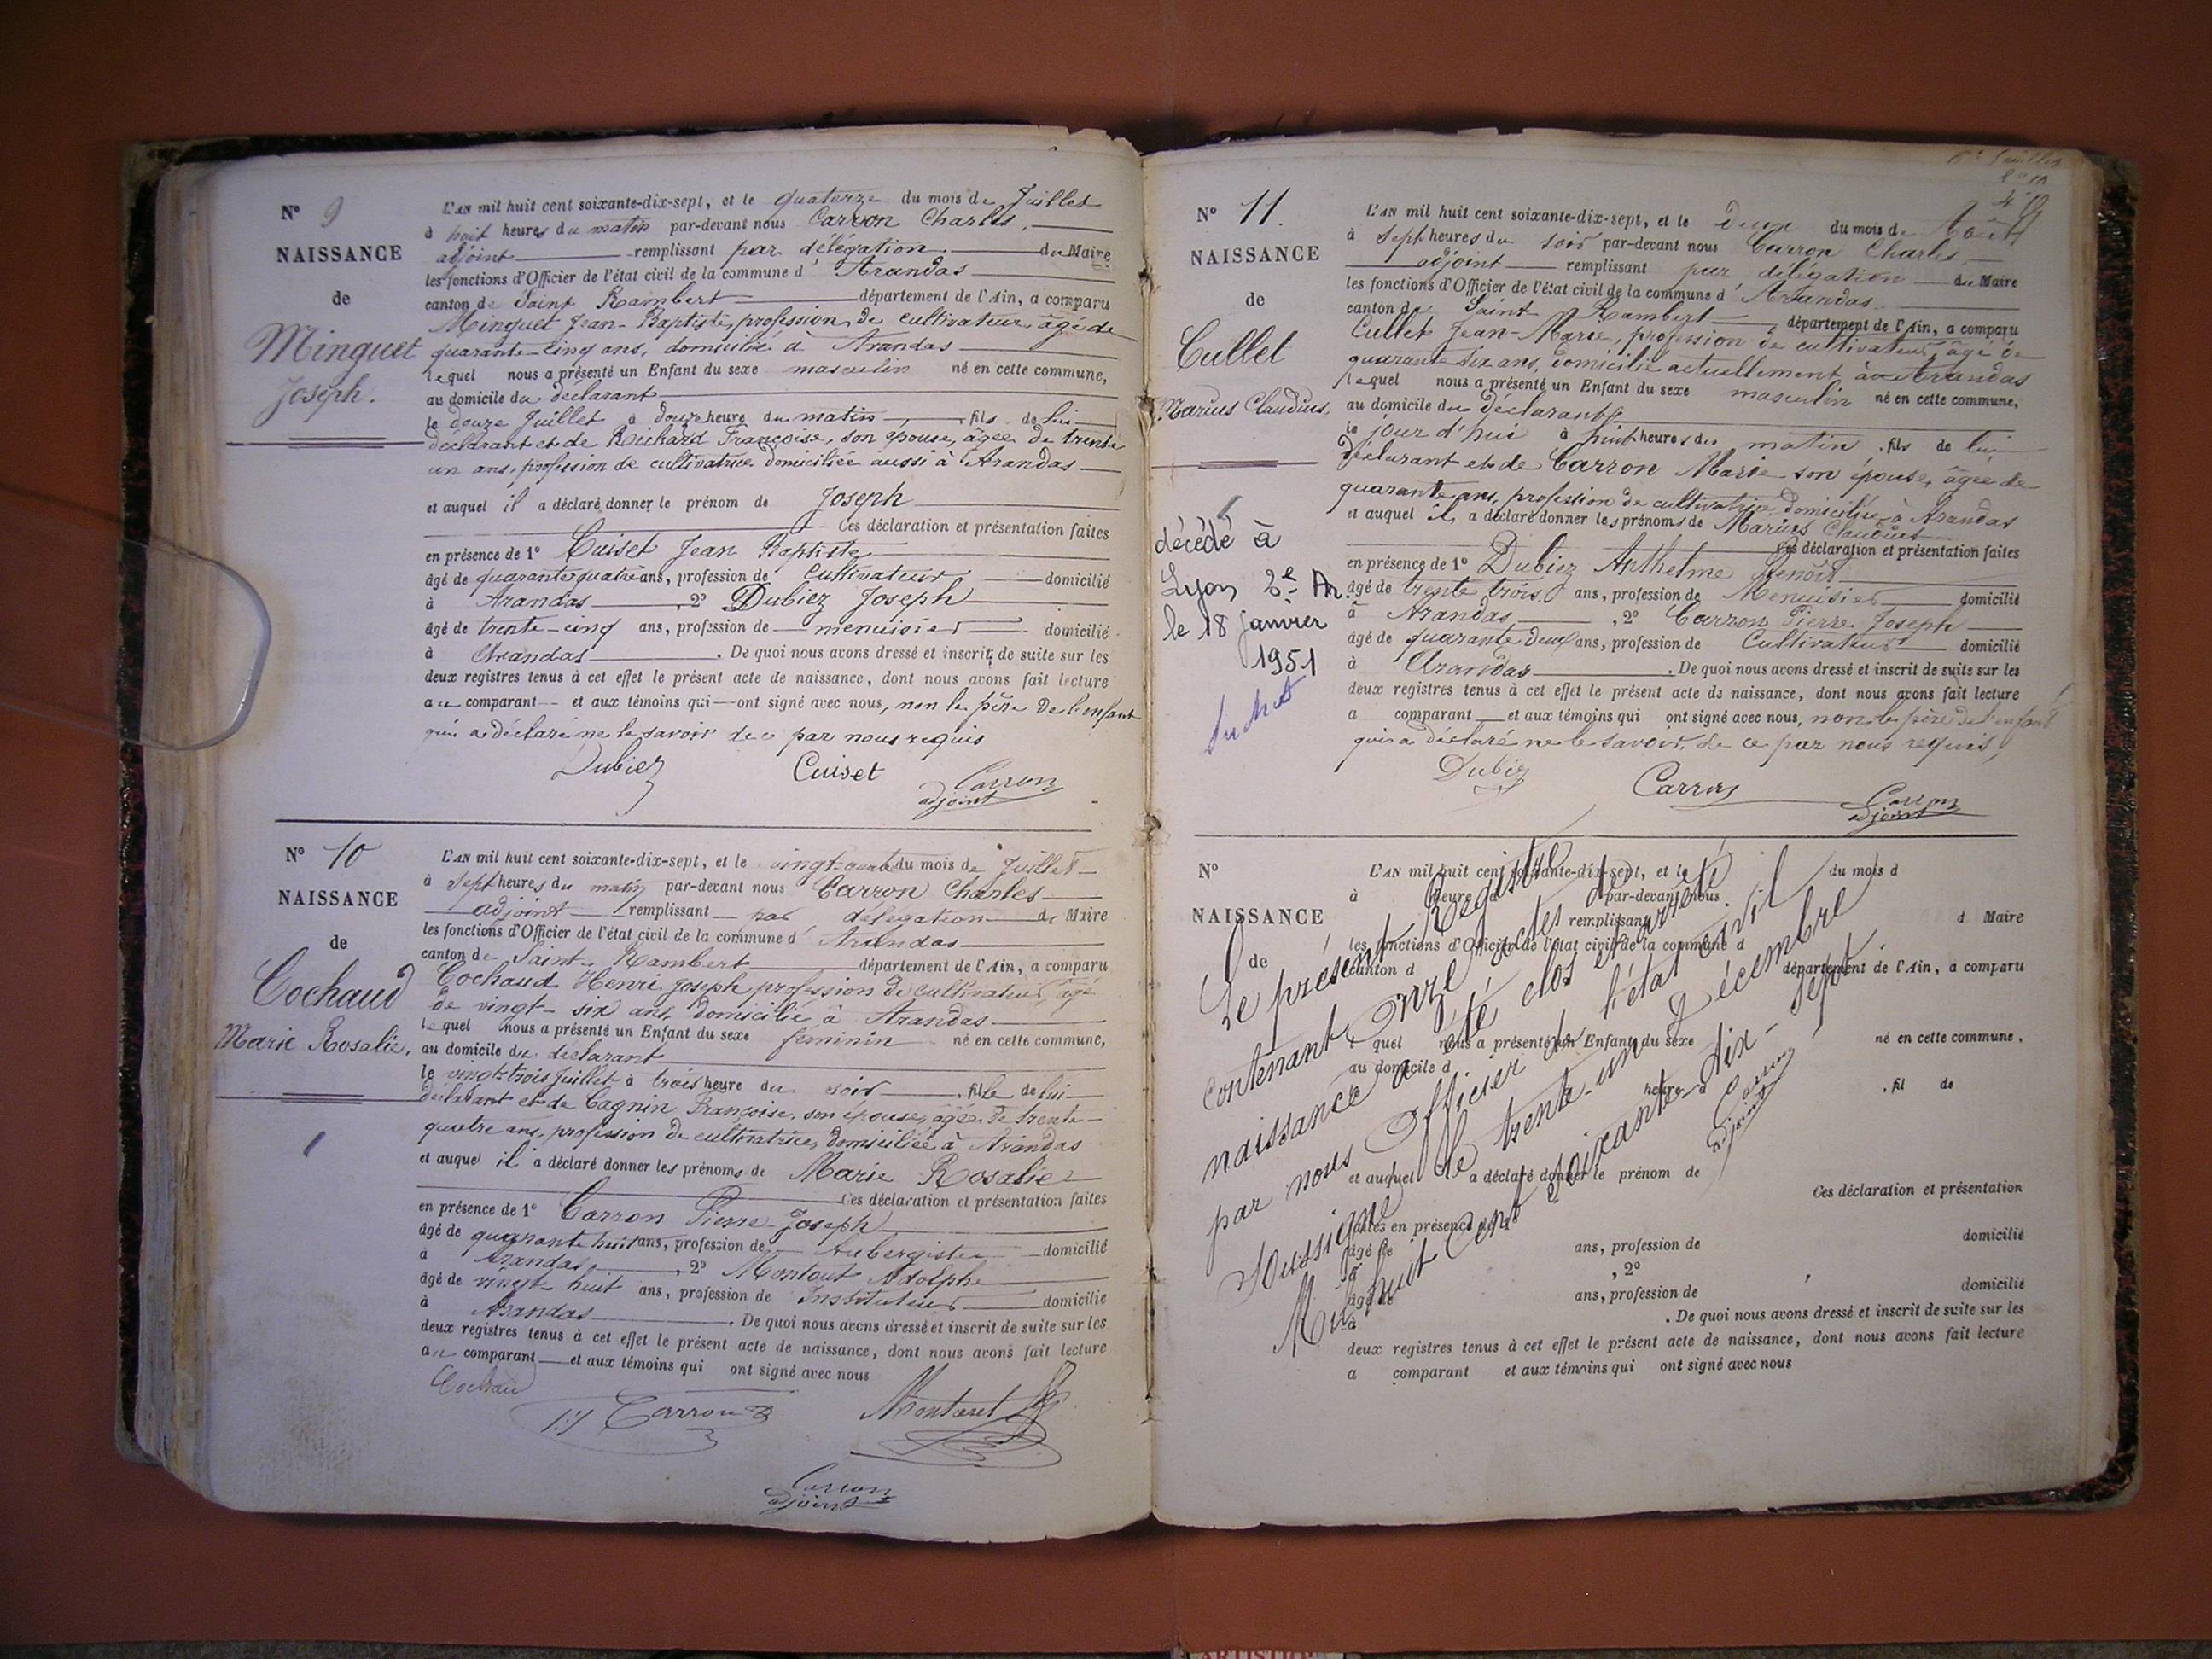 N° 9
NAISSANCE
de
Minguet
Joseph.
L'AN mil huit cent soixante-dix-sept, et le quatorze du mois de Juillet
à huit heures du matin par-devant nous Carron Charles,
adjoint remplissant par délégation du Maire
les fonctions d'Officier de l'état civil de la commune d' Arandas
canton de Saint Rambert département de l'Ain, a comparu
Minguet Jean-Baptiste, profession de cultivateur âgé de
quarante-cinq ans, domicilié à Arandas
lequel nous a présenté un Enfant du sexe masculin né en cette commune,
au domicile du déclarant
le douze Juillet à douze heure du matin, fils de lui
déclarant et de Richard Françoise, son épouse, âgée de trente
un ans, profession de cultivatrice domiciliée aussi à Arandas
et auquel il a déclaré donner le prénom de Joseph
Ces déclaration et présentation faites
en présence de 1° Cuiset Jean Baptiste
âgé de quarante quatre ans, profession de Cultivateur domicilié
à Arandas, 2° Dubiez Joseph
âgé de trente-cinq ans, profession de menuisier domicilié
à Arandas. De quoi nous avons dressé et inscrit de suite sur les
deux registres tenus à cet effet le présent acte de naissance, dont nous avons fait lecture
au comparant et aux témoins qui ont signé avec nous, non le père de l'enfant
qui a déclaré ne le savoir de ce par nous requis
Dubiez Cuiset Carron
adjoint
N° 10
NAISSANCE
de
Cochaud
Marie Rosalie.
L'AN mil huit cent soixante-dix-sept, et le vingt-quatre du mois de Juillet
à Sept heures du matin par-devant nous Carron Charles
adjoint remplissant par délégation du Maire
les fonctions d'Officier de l'état civil de la commune d' Arandas
canton de Saint Rambert département de l'Ain, a comparu
Cochaud Henri Joseph profession de cultivateur âgé
de vingt-six ans, domicilié à Arandas
lequel nous a présenté un Enfant du sexe feminin né en cette commune,
au domicile du déclarant
le vingt-trois Juillet à trois heure du soir, fille de lui
déclarant et de Cagnin Françoise, son épouse, âgée de trente-
quatre ans, profession de cultivatrice, domiciliée à Arandas
et auquel il a déclaré donner les prénoms de Marie Rosalie
Ces déclaration et présentation faites
en présence de 1° Carron Pierre-Joseph
âgé de quarante huit ans, profession de Aubergiste domicilié
à Arandas, 2° Adolphe
âgé de vingt huit ans, profession de Instituteur domicilié
à Arandas. De quoi nous avons dressé et inscrit de suite sur les
deux registres tenus à cet effet le présent acte de naissance, dont nous avons fait lecture
au comparant et aux témoins qui ont signé avec nous
Cochaud
Carron
Carron
adjoint
N° 11.
NAISSANCE
de
Cullet
Marius Claudius.
décédé à
Lyon 2e Ar.
le 18 janvier
1951
L'AN mil huit cent soixante-dix-sept, et le deux du mois de Août
à Sept heures du soir par-devant nous Carron Charles
adjoint remplissant par délégation du Maire
les fonctions d'Officier de l'état civil de la commune d' Arandas
canton de Saint Rambert département de l'Ain, a comparu
Cullet Jean-Marie, profession de cultivateur, âgé de
quarante six ans, domicilié actuellement à Arandas
lequel nous a présenté un Enfant du sexe masculin né en cette commune,
au domicile du déclarant
le jour d'hui à huit heures du matin, fils de lui
déclarant et de Carron Marie son épouse, âgée de
quarante ans, profession de cultivatrice domiciliée à Arandas
et auquel il a déclaré donner les prénoms de Marius Claudius
Ces déclaration et présentation faites
en présence de 1° Dubiez Anthelme Benoît
âgé de trente trois ans, profession de Menuisier domicilié
à Arandas, 2° Carron Pierre Joseph
âgé de quarante deux ans, profession de Cultivateur domicilié
à Arandas. De quoi nous avons dressé et inscrit de suite sur les
deux registres tenus à cet effet le présent acte de naissance, dont nous avons fait lecture
a comparant et aux témoins qui ont signé avec nous, non le père de l'enfant
qui a déclaré ne le savoir, de ce par nous requis,
Dubiez Carron Carron
adjoint
N°
NAISSANCE
de
L'AN mil huit cent soixante-dix-sept, et le du mois d
à heure d par-devant nous
remplissant d Maire
les fonctions d'Officier de l'état civil de la commune d
canton d département de l'Ain, a comparu
l quel nous a présenté un Enfant du sexe né en cette commune,
au domicile d
heure d, fil de
et auquel a déclaré donner le prénom de
Ces déclaration et présentation
faites en présence de 1°
âgé de ans, profession de domicilié
à, 2°
âgé de ans, profession de domicilié
à. De quoi nous avons dressé et inscrit de suite sur les
deux registres tenus à cet effet le présent acte de naissance, dont nous avons fait lecture
a comparant et aux témoins qui ont signé avec nous
Le présent Registre
contenant Onze actes de
naissance a été clos et arrêté
par nous Officier de l'état civil
soussigné le trente-un décembre
Mil huit cent soixante-dix-sept.
Carron
adjoint